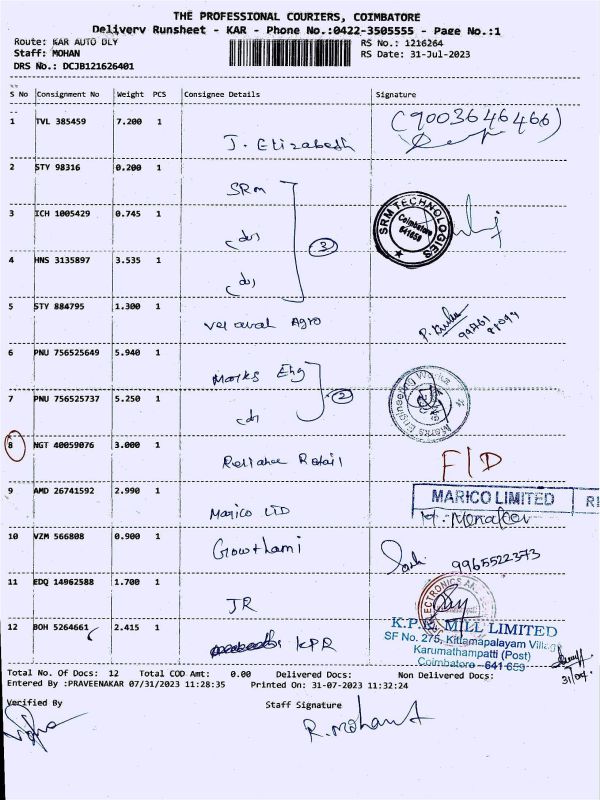 THE PROFESSIONAL COURIERS, COIMBATORE
Delivery Runsheet - KAR - Phone No.:0422-3505555 - Page No.:1
Route: KAR AUTO DLY
RS No.: 1216264
Staff: MOHAN
RS Date: 31-Jul-2023
DRS No.: DCJB121626401
S No Consignment No Weight PCS Consignee Details Signature
1 TVL 385459 7.200 1 J. Elizabesh (9003646466)
2 STY 98316 0.200 1 SRM
3 ICH 1005429 0.745 1 (do) SRM TECHNOLOGIES Coimbatore 641659
3
4 HNS 3135897 3.535 1 (do)
5 STY 884795 1.300 1 Vel aval Agro
6 PNU 756525649 5.940 1 Marks Eng
2
7 PNU 756525737 5.250 1 do Marks Engineering Works
8 NGT 40059076 3.000 1 Reliance Retail F/D
9 AMD 26741592 2.990 1 Marico LTD MARICO LIMITED
10 VZM 566808 0.900 1 Gowthami 9965522373
11 EDQ 14962588 1.700 1 JR ELECTRONICS AND
12 BOH 5264661 2.415 1 KPR
K.P.R. MILL LIMITED
SF No. 275, Kittampalayam Village
Karumathampatti (Post)
Coimbatore - 641 659
Total No. Of Docs: 12 Total COD Amt: 0.00 Delivered Docs: Non Delivered Docs:
Entered By :PRAVEENAKAR 07/31/2023 11:28:35 Printed On: 31-07-2023 11:32:24
Verified By Staff Signature
R. Mohan